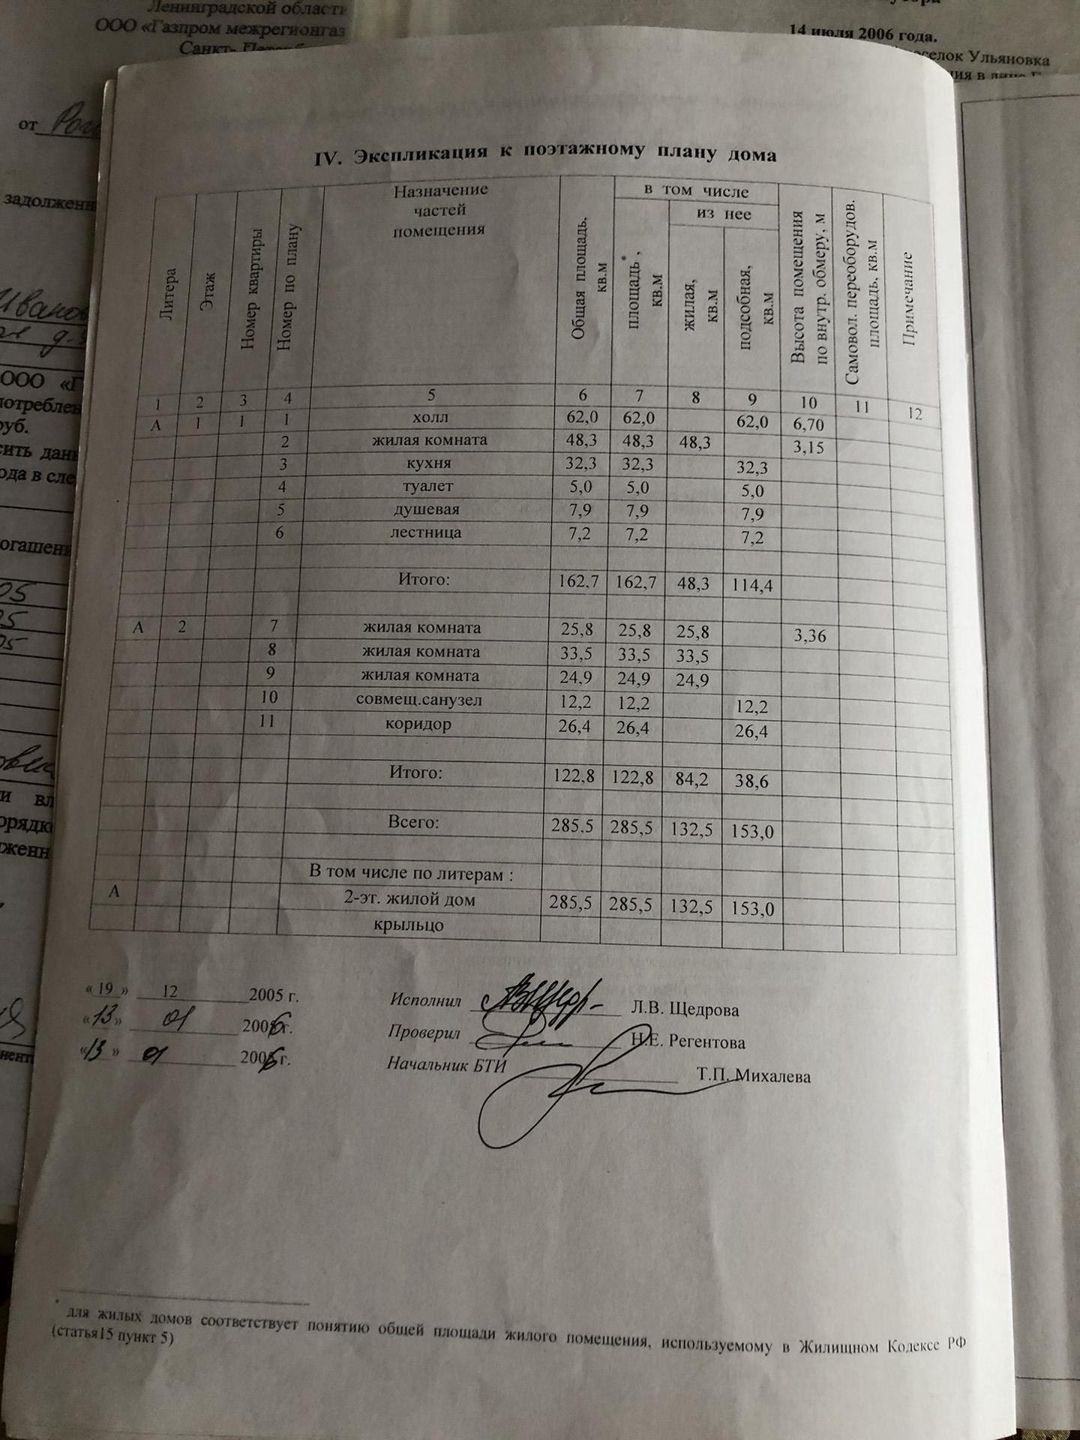 Ленинградской области
ООО «Газпром межрегионгаз
Санкт-
14 июля 2006 года.
поселок Ульяновка
от
задолжен
ООО «Г
потреблен
руб.
сить дан
ода в сле
огашени
05
05
05
и вл
орядк
жени
IV. Экспликация к поэтажному плану дома
Литера | Этаж | Номер квартиры | Номер по плану | Назначение частей помещения | Общая площадь, кв.м | в том числе | площадь*, кв.м | из нее | жилая, кв.м | подсобная, кв.м | Высота помещения по внутр. обмеру, м | Самовол. переоборудов. площадь, кв.м | Примечание
1 2 3 4 5 6 7 8 9 10 11 12
А 1 1 1 холл 62,0 62,0 62,0 6,70
2 жилая комната 48,3 48,3 48,3 3,15
3 кухня 32,3 32,3 32,3
4 туалет 5,0 5,0 5,0
5 душевая 7,9 7,9 7,9
6 лестница 7,2 7,2 7,2
Итого: 162,7 162,7 48,3 114,4
А 2 7 жилая комната 25,8 25,8 25,8 3,36
8 жилая комната 33,5 33,5 33,5
9 жилая комната 24,9 24,9 24,9
10 совмещ.санузел 12,2 12,2 12,2
11 коридор 26,4 26,4 26,4
Итого: 122,8 122,8 84,2 38,6
Всего: 285,5 285,5 132,5 153,0
В том числе по литерам :
А 2-эт. жилой дом 285,5 285,5 132,5 153,0
крыльцо
« 19 » 12 2005 г. Исполнил Л.В. Щедрова
«13» 01 2006 г. Проверил Н.Е. Регентова
«13 » 01 2006 г. Начальник БТИ Т.П. Михалева
* для жилых домов соответствует понятию общей площади жилого помещения, используемому в Жилищном Кодексе РФ
(статья15 пункт 5)